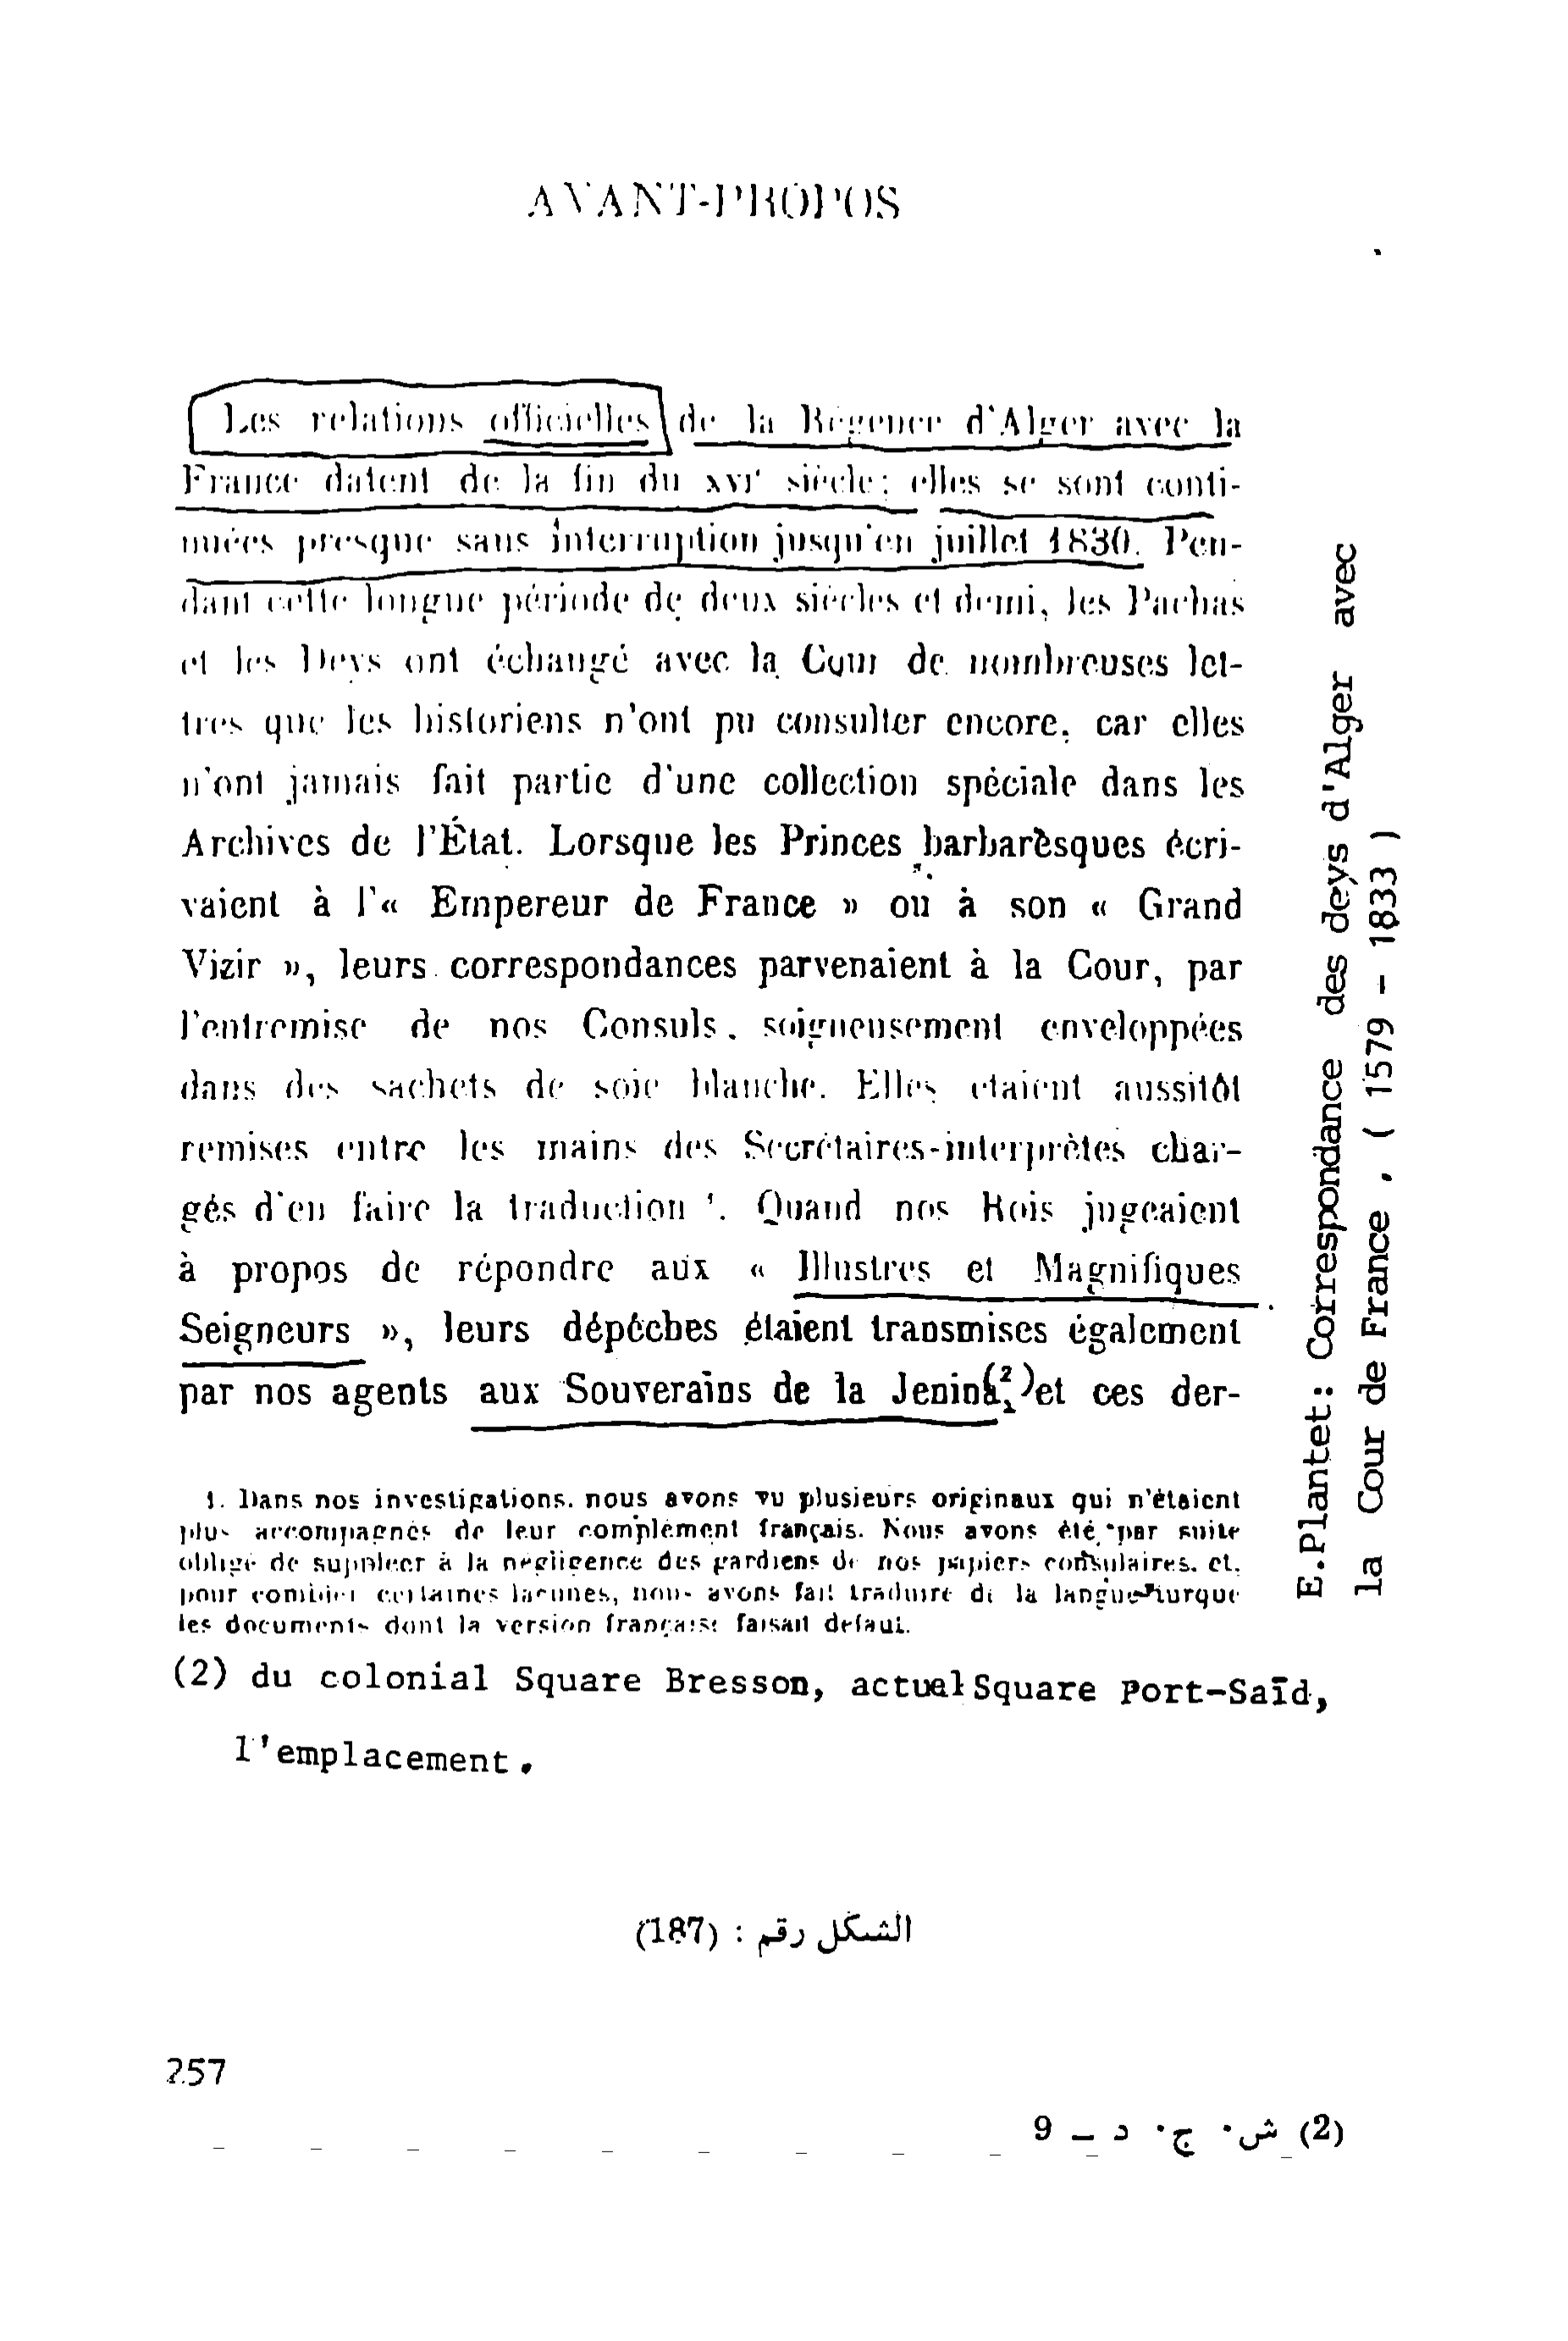 AVANT-PROPOS
Les relations officielles de la Régence d'Alger avec la
France datent de la fin du XVIe siècle; elles se sont conti-
nuées presque sans interruption jusqu'en juillet 1830. Pen-
dant cette longue période de deux siècles et demi, les Pachas
et les Deys ont échangé avec la Cour de nombreuses let-
tres que les historiens n'ont pu consulter encore, car elles
n'ont jamais fait partie d'une collection spéciale dans les
Archives de l'État. Lorsque les Princes barbarèsques écri-
vaient à l'« Empereur de France » ou à son « Grand
Vizir », leurs correspondances parvenaient à la Cour, par
l'entremise de nos Consuls, soigneusement enveloppées
dans des sachets de soie blanche. Elles étaient aussitôt
remises entre les mains des Secrétaires-interprètes char-
gés d'en faire la traduction 1. Quand nos Rois jugeaient
à propos de répondre aux « Illustres et Magnifiques
Seigneurs », leurs dépêches étaient transmises également
par nos agents aux Souverains de la Jenina(2) et ces der-
1. Dans nos investigations, nous avons vu plusieurs originaux qui n'étaient
plus accompagnés de leur complément français. Nous avons été par suite
obligé de suppléer à la négligence des gardiens de nos papiers consulaires, et,
pour combler certaines lacunes, nous avons fait traduire de la langue turque
les documents dont la version française faisait défaut.
(2) du colonial Square Bresson, actuel Square Port-Saïd,
l'emplacement.
E.Plantet: Correspondance des deys d'Alger avec
la Cour de France, ( 1579 - 1833 )
الشكل رقم : (187)
257
(2) ش. ج. د _ 9